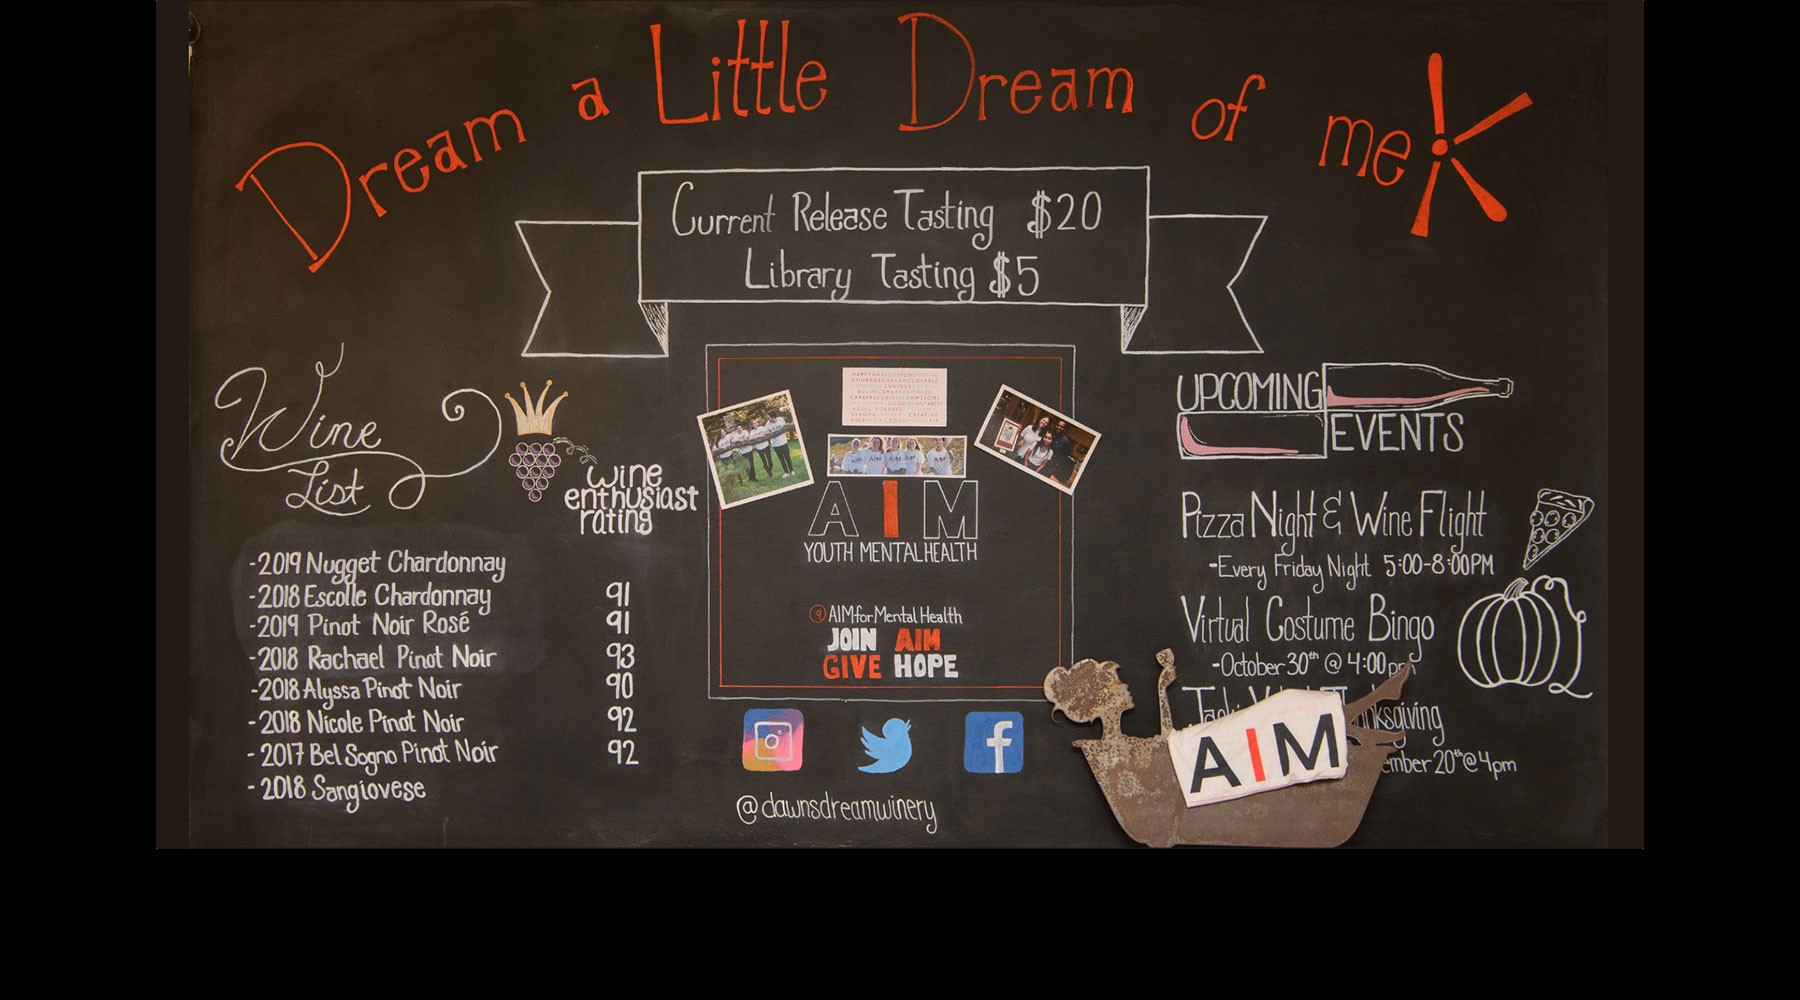 Dream a Little Dream of me
Current Release Tasting $20
Library Tasting $5
Wine
List
wine
enthusiast
rating
-2019 Nugget Chardonnay
-2018 Escolle Chardonnay 91
-2019 Pinot Noir Rosé 91
-2018 Rachael Pinot Noir 93
-2018 Alyssa Pinot Noir 90
-2018 Nicole Pinot Noir 92
-2017 Bel Sogno Pinot Noir 92
-2018 Sangiovese
AIM
YOUTH MENTAL HEALTH
@AIMforMental Health
JOIN AIM
GIVE HOPE
@dawnsdreamwinery
UPCOMING
EVENTS
Pizza Night & Wine Flight
-Every Friday Night 5:00-8:00PM
Virtual Costume Bingo
-October 30th @ 4:00pm
20th @ 4pm
AIM